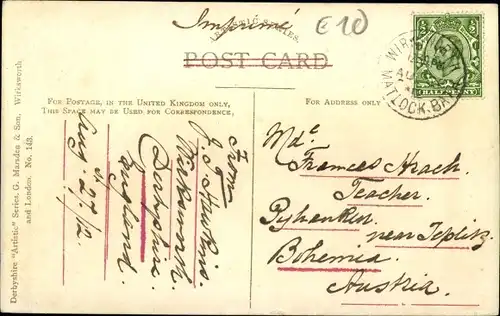 Imprimé
"ARTISTIC" SERIES.
£10
POST CARD
FOR POSTAGE, IN THE UNITED KINGDOM ONLY,
THIS SPACE MAY BE USED FOR CORRESPONDENCE,
FOR ADDRESS ONLY
HALFPENNY
MATLOCK.BATH
From
J. S. Hawkins.
Wirksworth
Derbyshire.
England
Aug 27/12
Md<sup>e</sup>
Frances Hrach
Teacher
Pyhanken
near Teplitz
Bohemia
Austria.
Derbyshire "Artistic" Series, G. Marsden & Son, Wirksworth
and London. No. 143.